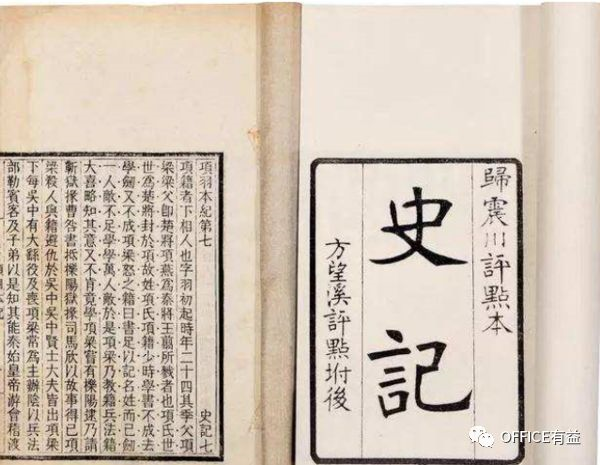 歸震川評點本
史記
方望溪評點坿後
項羽本紀第七
史記七
項籍者下相人也字羽初起時年二十四其季父項
梁梁父卽楚將項燕爲秦將王翦所戮者也項氏世
世爲楚將封於項故姓項氏項籍少時學書不成去
學劍又不成項梁怒之籍曰書足以記名姓而已劍
一人敵不足學學萬人敵於是項梁乃教籍兵法籍
大喜略知其意又不肯竟學項梁嘗有櫟陽逮乃請
蘄獄掾曹咎書抵櫟陽獄掾司馬欣以故事得已項
梁殺人與籍避仇於吳中吳中賢士大夫皆出項梁
下每吳中有大繇役及喪項梁常爲主辦陰以兵法
部勒賓客及子弟以是知其能秦始皇帝游會稽渡
OFFICE有益